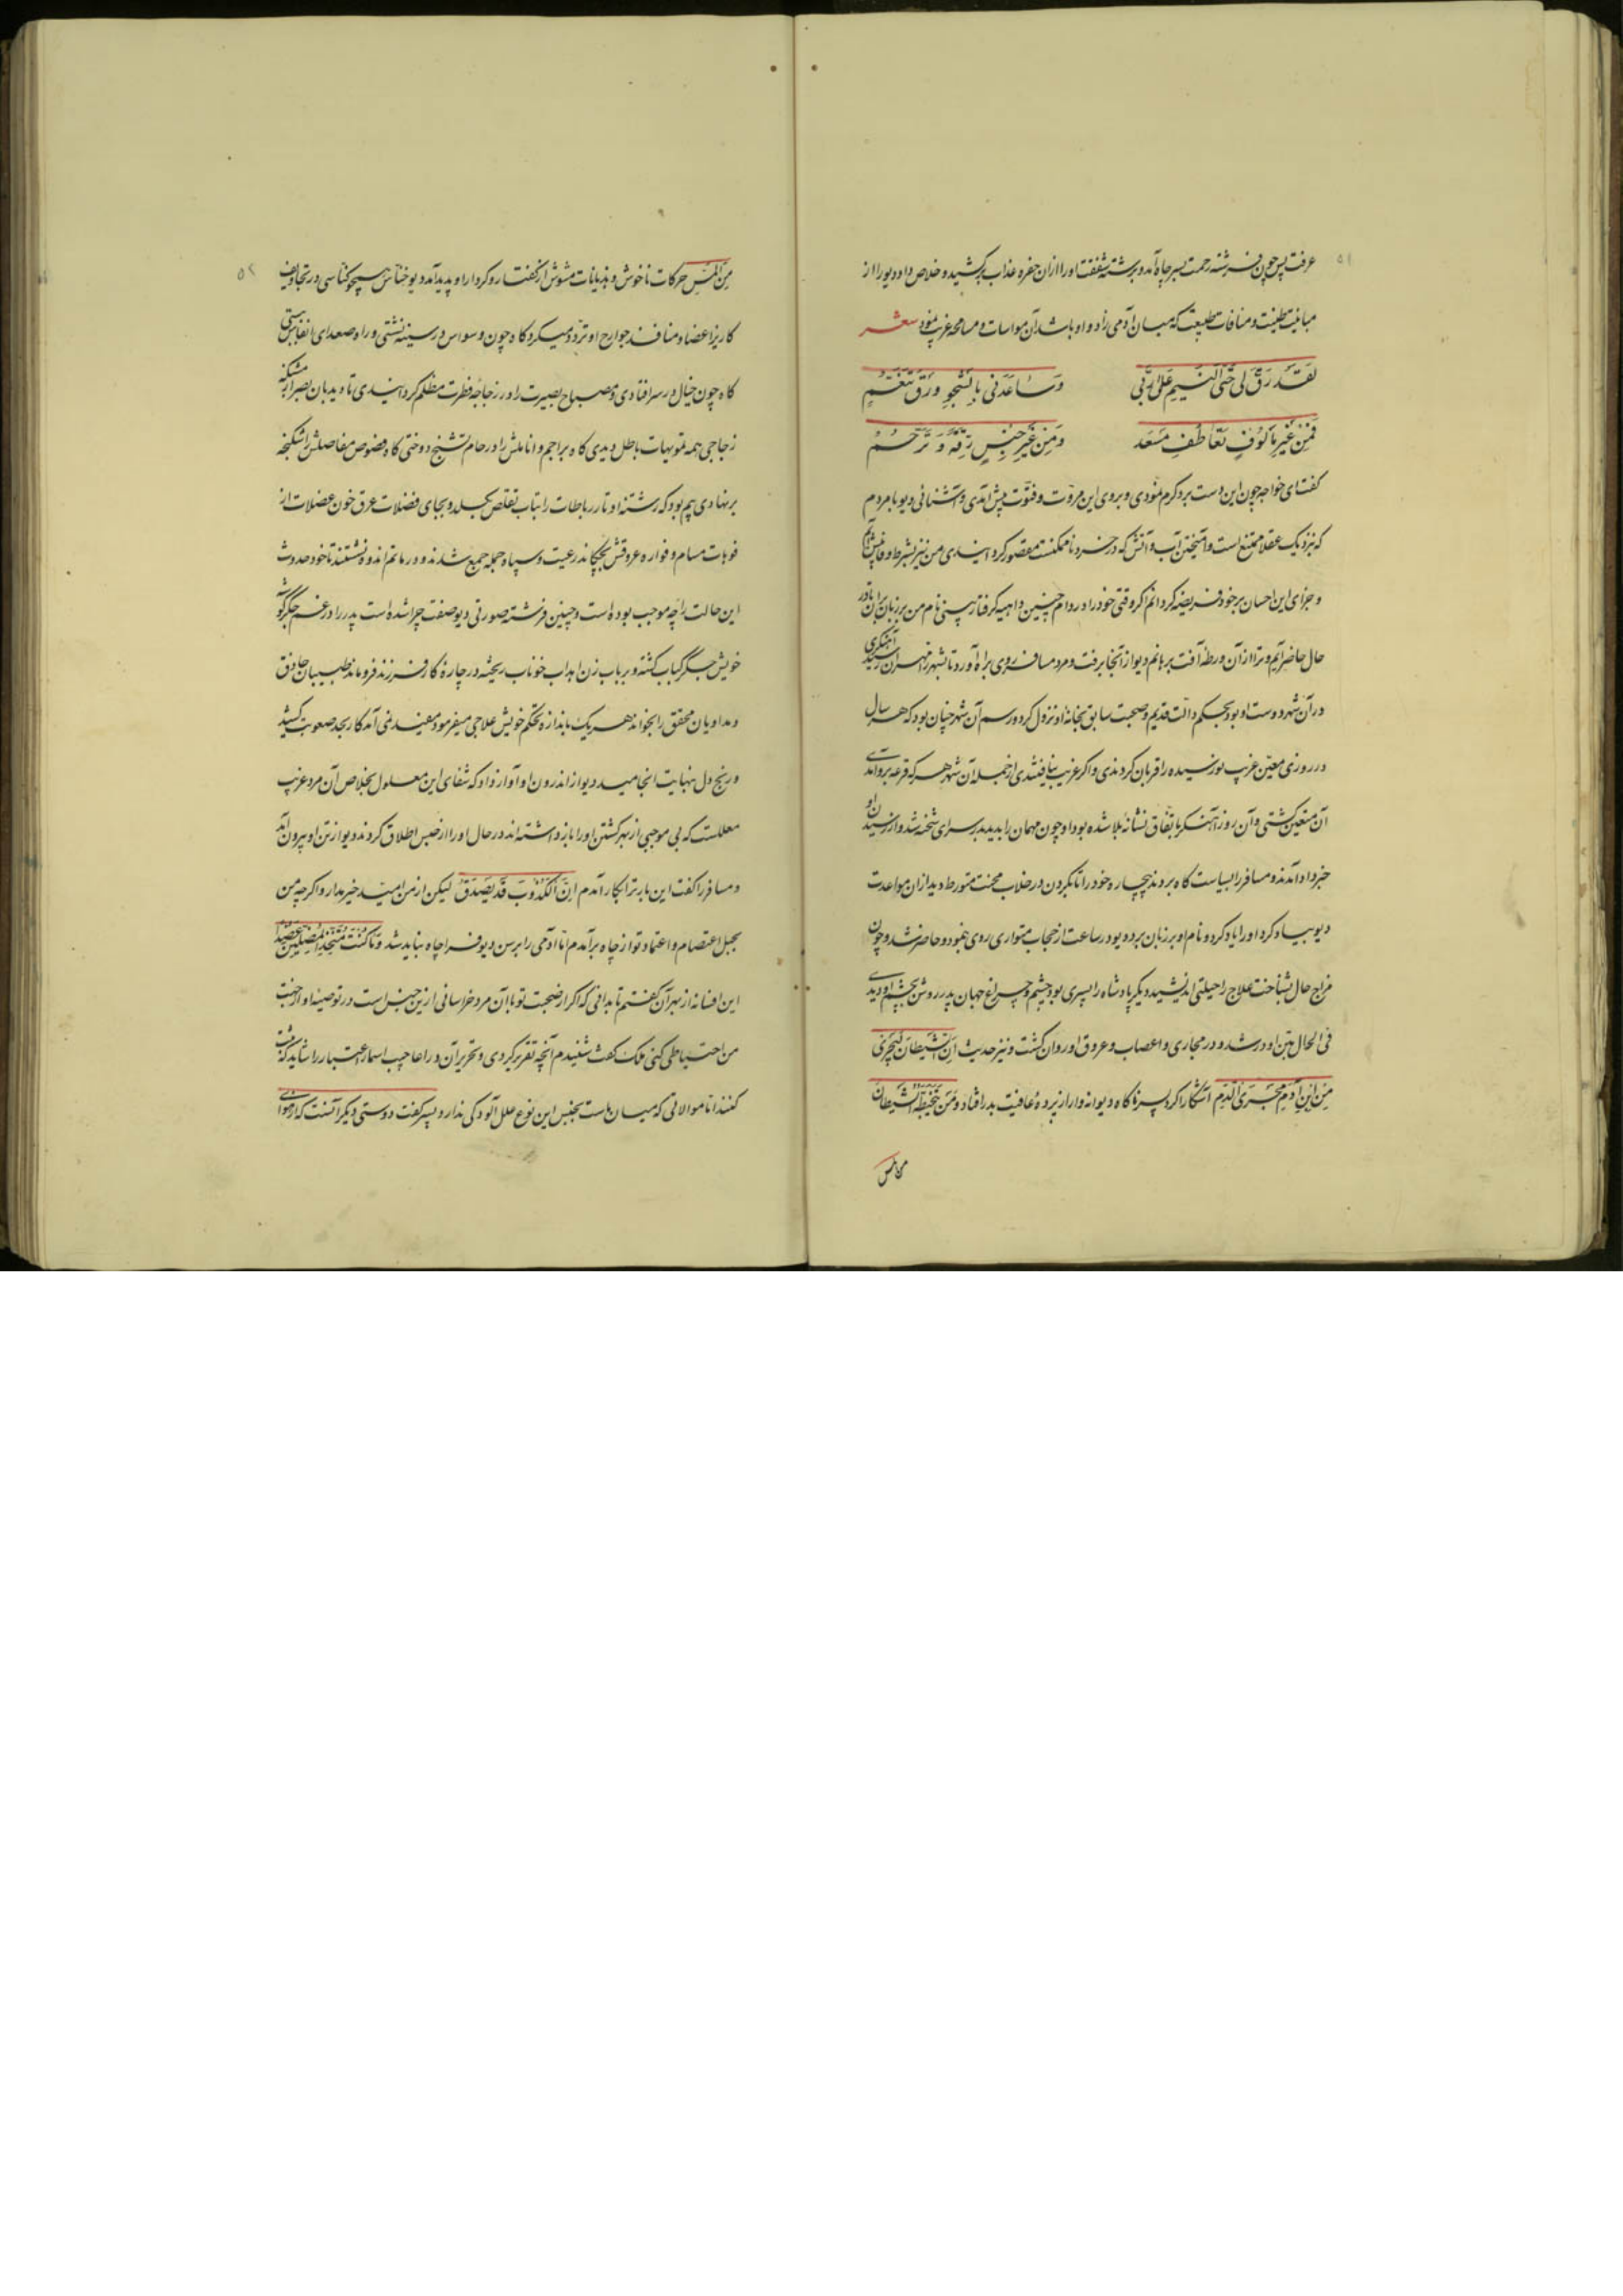 ۵۱
عرفت پس چون فرشته رحمت بسر چاه آمد و برشته شفقت اورا ازان حفره عذاب برکشید و خلاص داد دیو را از
مباینت طینت و منافات طبیعت که میان آدمی زاد و او باشد آن مواسات و مسامحه غریب نمود شعر
لَقَد رَقَّ لی حَتّی النَّسیمِ عَلَی الرُّبی وَسَاعَدَنی بِالشَّجوِ وَرَقٌ تَنَغَّمُ
فَمِن غَیرِ مَألُوفٍ تَعَاطُفِ مُسعَد وَمِن غَیرِ جِنسٍ رِقَّةٌ وَ تَرَحُّمُ
گفت ای خواجه چون این دست برد کرم نمودی و بروی این مروّت و فتوّت پیش آمدی و آشنائی دیو با مردم
که نزدیک عقلا ممتنع است و آمیختن آب و آتش که در خرد ناممکنست مصوّر گردانیدی من نیز بشرط وفا پیش آیم
و جزای این احسان بر خود فریضه گردانم اگر وقتی خود را در دام چنین داهیه گرفتار بینی نام من بر زبان بران تا در
حال حاضر آیم و ترا از آن ورطه آفت برهانم دیو از آنجا برفت و مرد مسافر روی براه آورد تا بشهر رسید آهنگری
در آن شهر دوست او بود بحکم دالّت قدیم و صحبت سابق بخانه او نزول کرد و رسم آن شهر چنان بود که هر سال
در روزی معیّن غریب نورسیده را قربان کردندی و اگر غریب نیافتندی از جمله آن شهر هر که قرعه برو آمدی
آن متعین گشتی و آن روز آهنگر باتّفاق نشانه بلا شده بود او چون مهمان را بدید بدر سرای شحنه شد و از رسیدن او
خبر داد آمدند و مسافر را بسیاست گاه بردند بیچاره خود را تا بگردن در خلاب محنت متورط دید از ان مواعدت
دیو بیاد کرد او را یاد کرد و نام او بر زبان برد دیو در ساعت از حجاب متواری روی بنمود و حاضر شد و چون
مزاج حال بشناخت علاج را حیلتی اندیشید و دیگر پادشاه را پسری بود چشم و چراغ جهان پدر روشن بچشم او دیدی
فی الحال بتن او در شد و در مجاری و اعصاب و عروق او روان گشت و نیز حدیث اِنَّ الشَّیطَانَ لَیَجرِی
مِن اِبنِ آدَمَ مَجرَی الدَّمِ آشکارا کرد پسر ناگاه دیوانه وار از پرده عافیت بدر افتاد و مَن یَتَخَبَّطُهُ الشَّیطَانُ
من المس
۵۲
مِنَ المَسِّ حرکات ناخوش و هذیانات مشوّش از گفتار و کردار او پدید آمد دیو خنّاس همچو کنّاسی در تجاویف
کاریز اعضا و منافذ جوارح او تردّد میکرد گاه چون وسواس در سینه نشستی و راه صعدای انفاس بستی
گاه چون خیال در سر افتادی و مصباح بصیرت را در زجاجه فطرت مظلم گردانیدی تا دیدبان بصر از مشکة
زجاجی همه تمویهات باطل دیدی گاه براجم و انامل را در خام تشنّج دوختی گاه فصوص مفاصلش را شکنجه
برنهادی بیم بود که رشته اوتار رباطات را بتاب تقلّص بگسلد و بجای فضلات عرق خون عضلات از
فوهات مسام و فواره عروقش بچکاند رعیت و سپاه جمله جمع شدند و در ماتم اندوه نشستند تا خود حدوث
این حالت را چه موجب بوده است و چنین فرشته صورتی دیو صفت چرا شده است پدر را در غم جگر گوشه
خویش جگر کباب گشته و بر باب زن اهداب خوناب ریخته در چاره کار فرزند فرو ماند طبیبان حاذق
و مداویان محقق را بخواند هر یک باندازه تحکّم خویش علاجی میفرمود مفید نمی آمد کار بحد صعوبت کشید
و رنج دل بنهایت انجامید دیو از اندرون او آواز داد که شفای این معلول بخلاص آن مرد غریب
معللست که بی موجبی از بهر کشتن او را باز داشته اند در حال او را از حبس اطلاق کردند دیو از تن او بیرون آمد
و مسافر را گفت این بار ترا بکار آمدم اِنَّ الکَذُوبَ قَد یَصدُقُ لیکن از من امید خیر مدار و اگر چه من
بحبل اعتصام و اعتماد تو از چاه بر آمدم امّا آدمی را برسن دیو فرا چاه نباید شد وَمَا کُنتُ مُتَّخِذَ المُضِلّینَ عَضُداً
این افسانه از بهر آن گفتم تا بدانی که اگر از صحبت تو با آن مرد خراسانی از ین جنس است در توصیه او از جهت
من احتیاطی کنی ملک گفت شنیدم آنچه تقریر کردی و تحریر آن در اعاجیب اسمار اعتبار را شاید که ثبت
کنند امّا موالاتی که میان ماست بجنس این نوع علل آلودگی ندارد پسر گفت دوستی دیگر آنست که از هوای